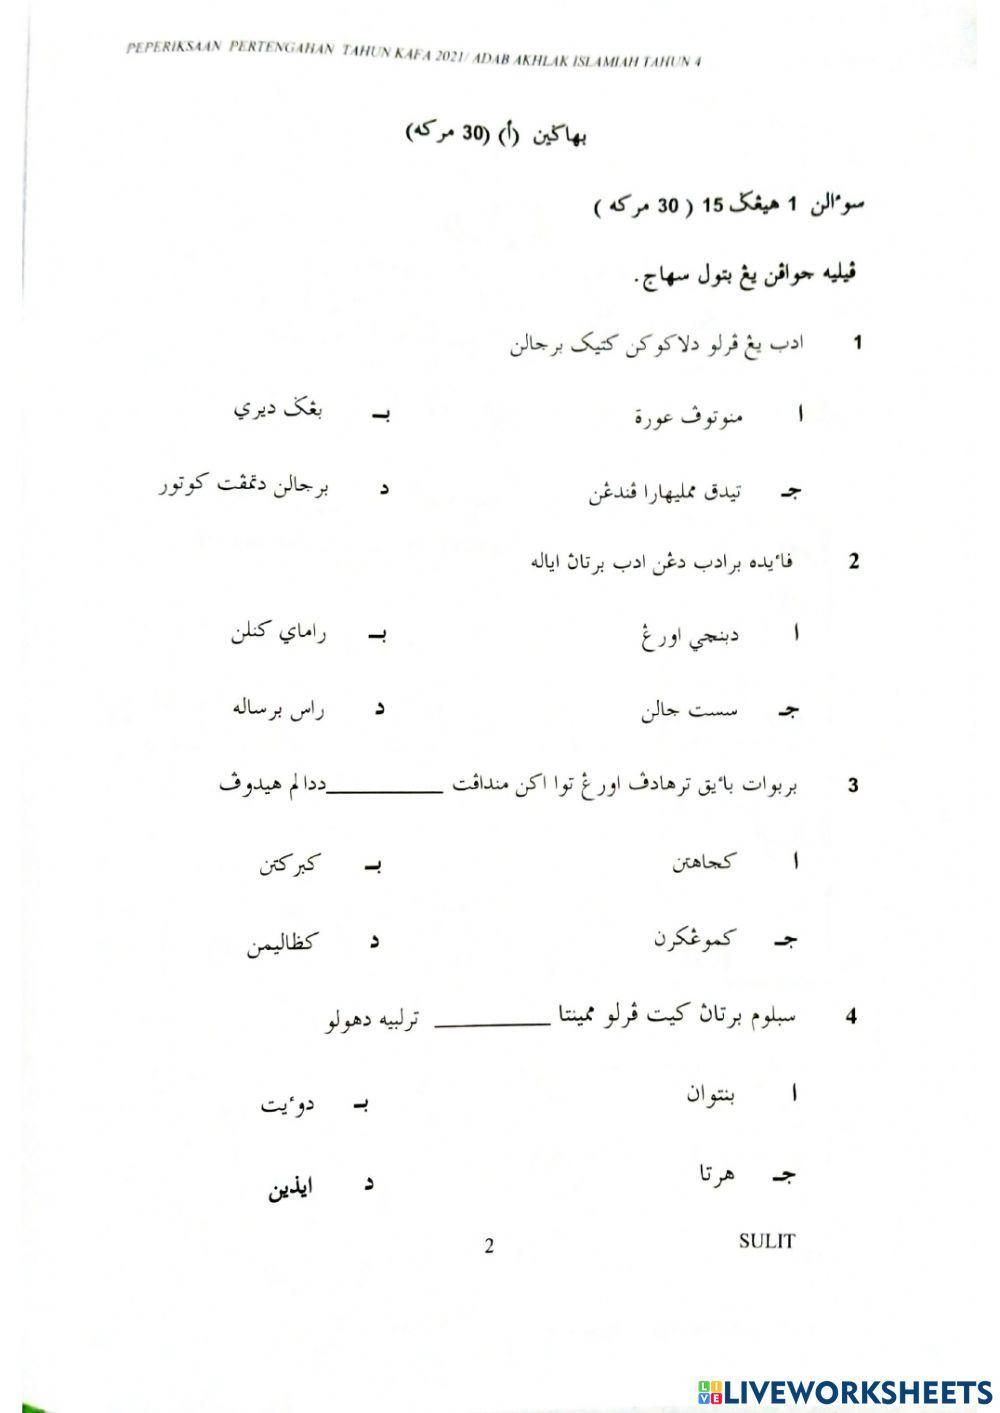 PEPERIKSAAN PERTENGAHAN TAHUN KAFA 2021/ ADAB AKHLAK ISLAMIAH TAHUN 4
بهاݢين (أ) (30 مركه)
سوءالن 1 هيڠݢ 15 ( 30 مركه )
ڤيليه جواڤن يڠ بتول سهاج.
1 ادب يڠ ڤرلو دلاكوكن كتيک برجالن
ا منوتوڤ عورة بـ بڠݢ ديري
جـ تيدق ممليهارا ڤندڠن د برجالن دتمڤت كوتور
2 فاءيده برادب دڠن ادب برتاڽ اياله
ا دبنچي اورڠ بـ راماي كنلن
جـ سست جالن د راس برساله
3 بربوات باءيق ترهادڤ اورڠ توا اكن منداڤت __________ ددالم هيدوڤ
ا كجاهتن بـ كبركتن
جـ كموڠكرن د كظاليمن
4 سبلوم برتاڽ كيت ڤرلو ممينتا __________ ترلبيه دهولو
ا بنتوان بـ دوءيت
جـ هرتا د ايذين
2 SULIT
LIVEWORKSHEETS